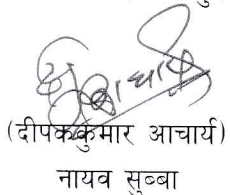 (दीपककुमार आचार्य)
नायव सुब्बा